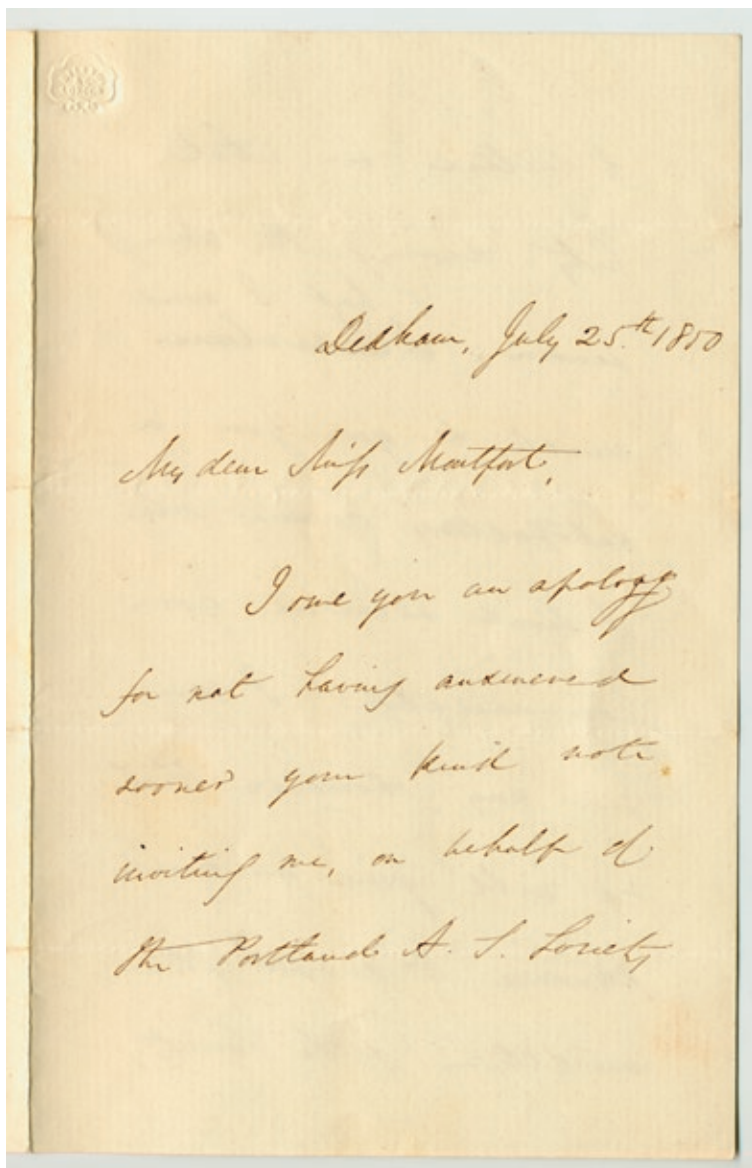 Dedham, July 25.th 1850
My dear Miss Montfort,
I owe you an apology
for not having answered
sooner your kind note
inviting me, on behalf of
the Portland A. S. Society